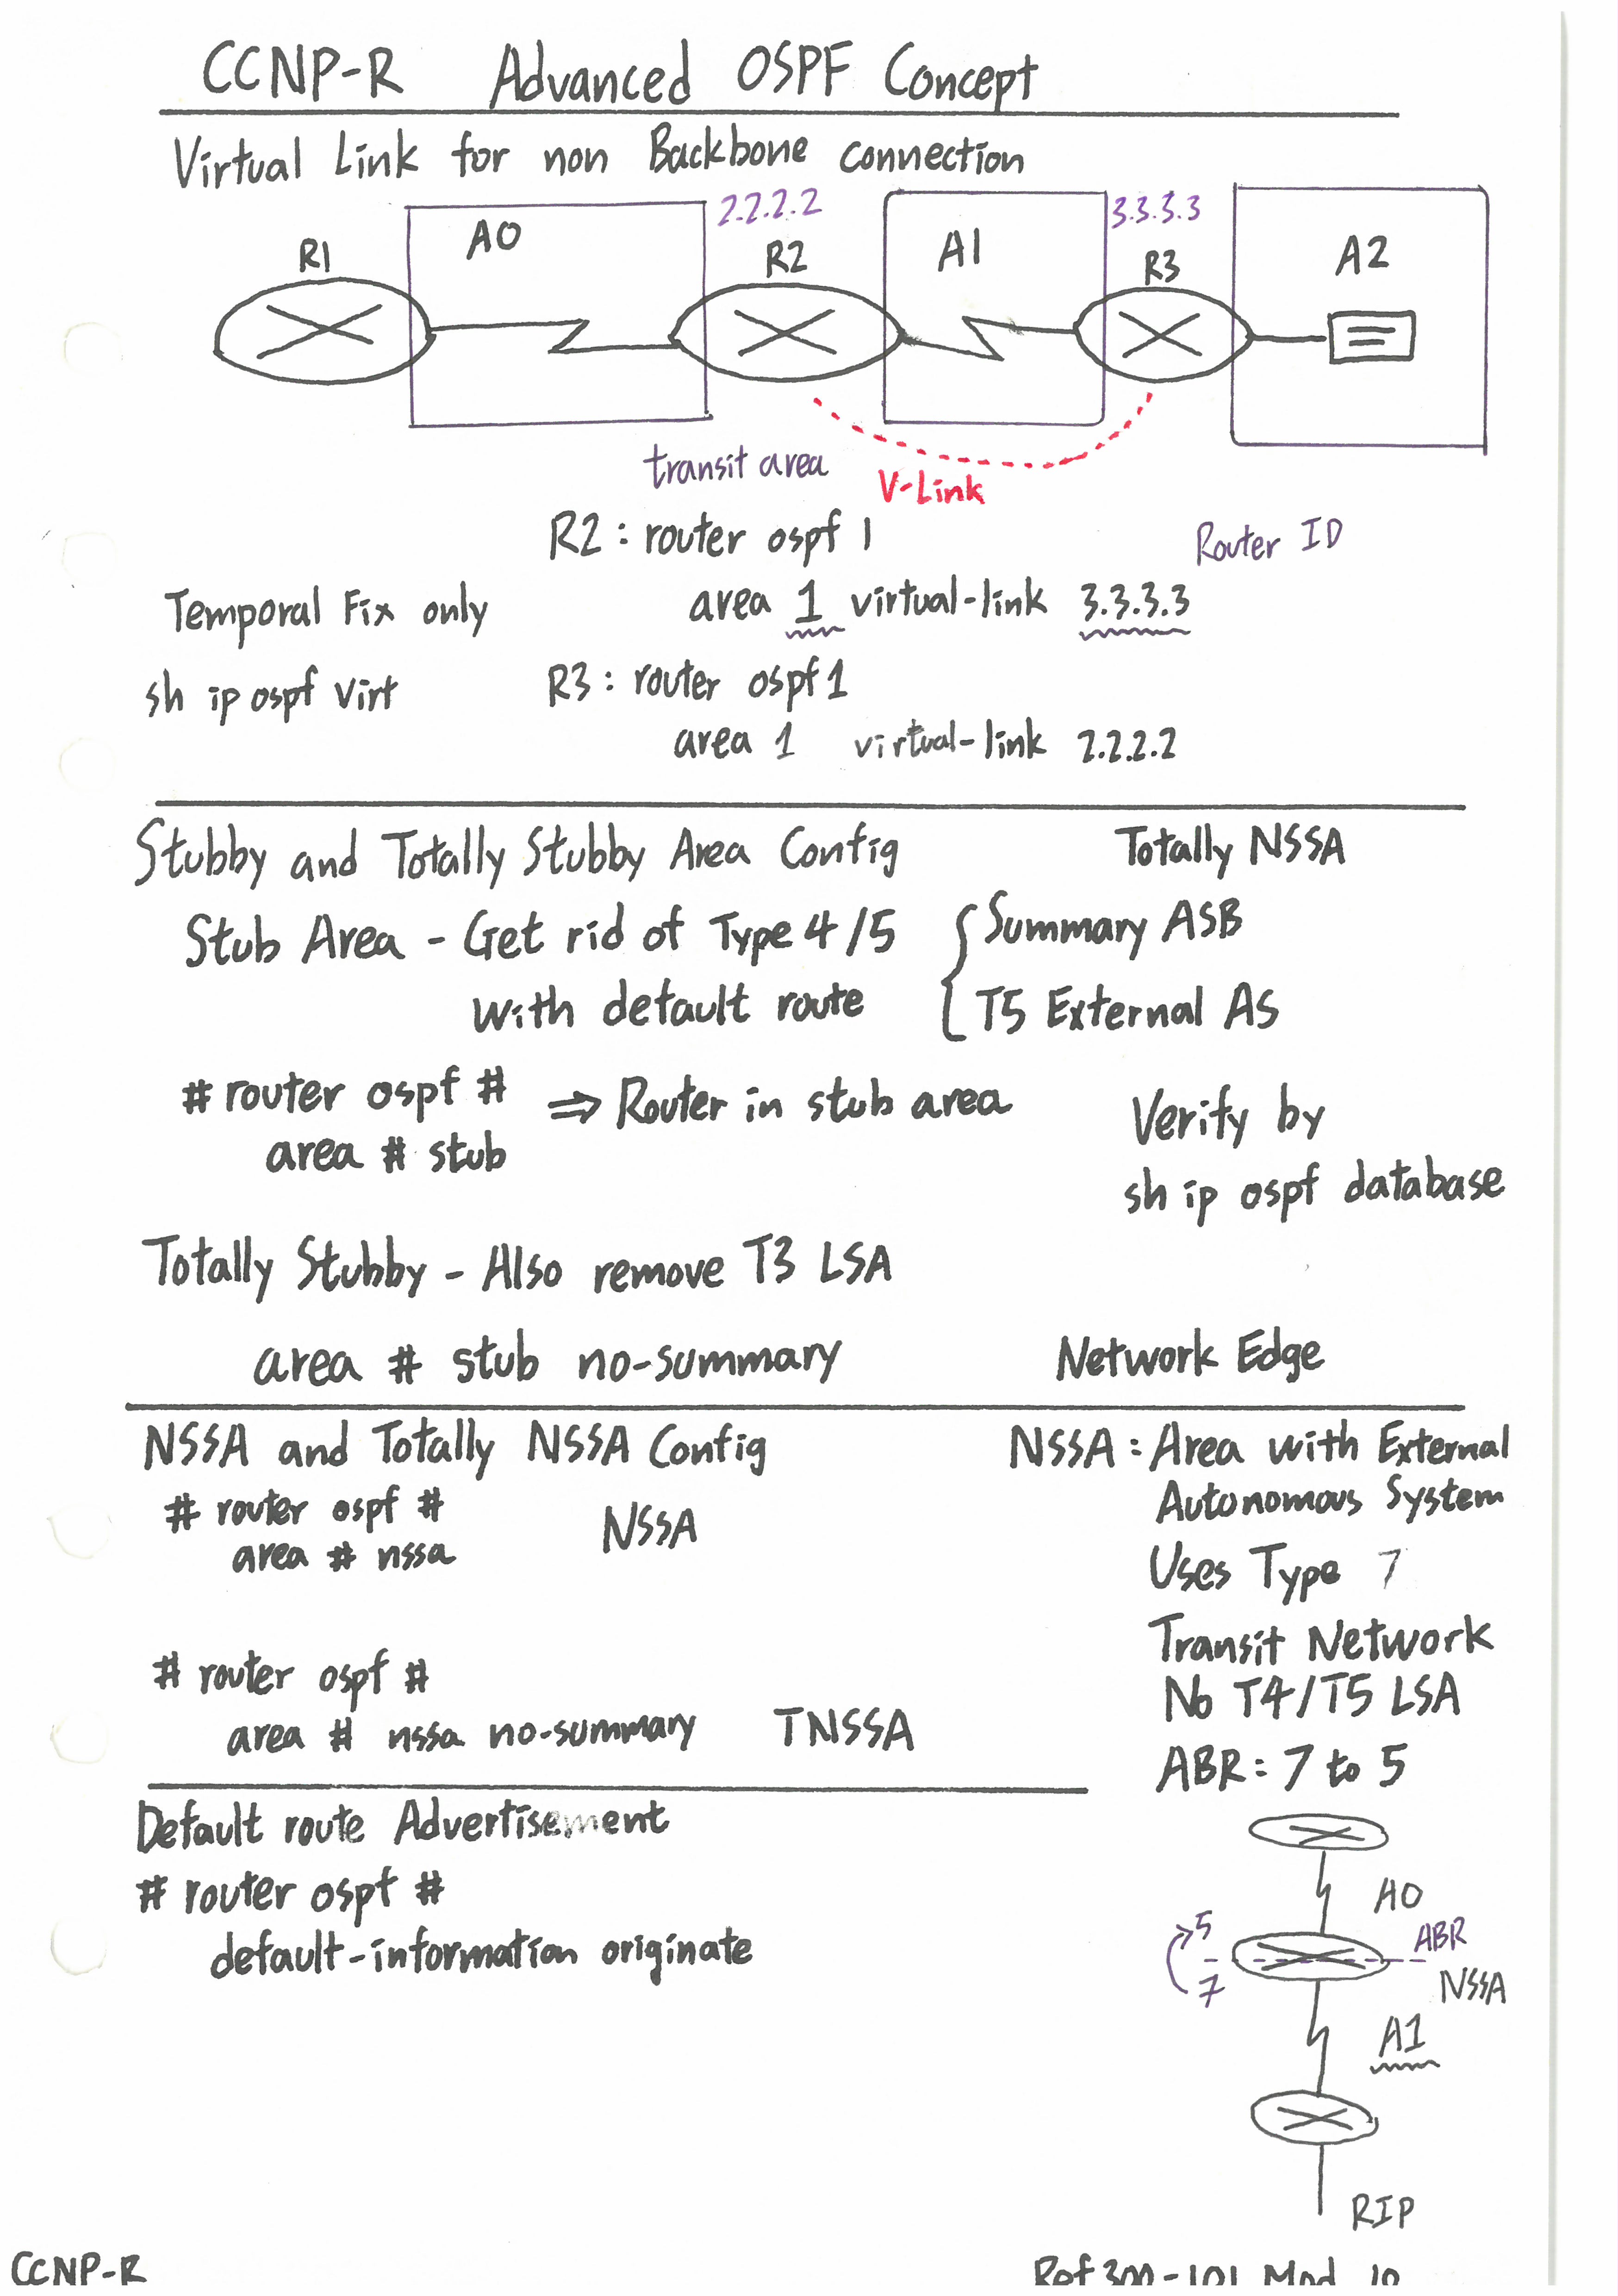 CCNP-R Advanced OSPF Concept
Virtual Link for non Backbone connection
R1
A0
2.2.2.2
R2
A1
3.3.3.3
R3
A2
transit area
V-Link
R2 : router ospf 1
Router ID
Temporal Fix only
area 1 virtual-link 3.3.3.3
sh ip ospf virt
R3 : router ospf 1
area 1 virtual-link 2.2.2.2
Stubby and Totally Stubby Area Config
Totally NSSA
Stub Area - Get rid of Type 4/5
with default route
Summary ASB
T5 External AS
# router ospf #
area # stub
⇒ Router in stub area
Verify by
sh ip ospf database
Totally Stubby - Also remove T3 LSA
area # stub no-summary
Network Edge
NSSA and Totally NSSA Config
# router ospf #
area # nssa
NSSA
# router ospf #
area # nssa no-summary
TNSSA
NSSA : Area with External
Autonomous System
Uses Type 7
Transit Network
No T4/T5 LSA
ABR : 7 to 5
Default route Advertisement
# router ospf #
default-information originate
A0
5
ABR
7
NSSA
A1
RIP
CCNP-R
Ref 300-101 Mod 10